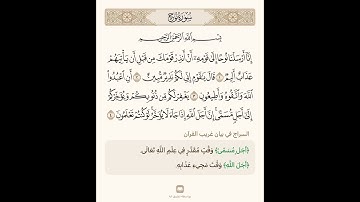 سُورَةُ نُوحٍ
بِسْمِ اللَّهِ الرَّحْمَٰنِ الرَّحِيمِ
إِنَّا أَرْسَلْنَا نُوحًا إِلَىٰ قَوْمِهِ أَنْ أَنذِرْ قَوْمَكَ مِن قَبْلِ أَن يَأْتِيَهُمْ
عَذَابٌ أَلِيمٌ ١ قَالَ يَا قَوْمِ إِنِّي لَكُمْ نَذِيرٌ مُّبِينٌ ٢ أَنِ اعْبُدُوا
اللَّهَ وَاتَّقُوهُ وَأَطِيعُونِ ٣ يَغْفِرْ لَكُم مِّن ذُنُوبِكُمْ وَيُؤَخِّرْكُمْ
إِلَىٰ أَجَلٍ مُّسَمًّى إِنَّ أَجَلَ اللَّهِ إِذَا جَاءَ لَا يُؤَخَّرُ لَوْ كُنتُمْ تَعْلَمُونَ ٤
السراج في بيان غريب القرآن
﴿أَجَلٍ مُّسَمًّى﴾ وَقْتٍ مُقَدَّرٍ فِي عِلْمِ اللَّهِ تَعَالَى.
﴿أَجَلَ اللَّهِ﴾ وَقْتَ مَجِيءِ عَذَابِهِ.